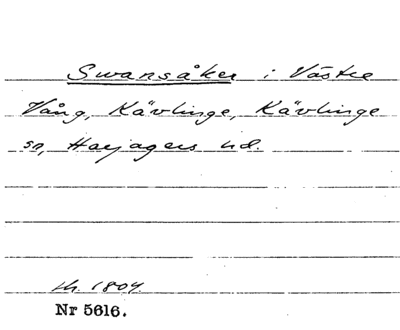 Swansåker i Västre
Vång, Kävlinge, Kävlinge
sn, Harjagers hd.
1804
Nr 5616.